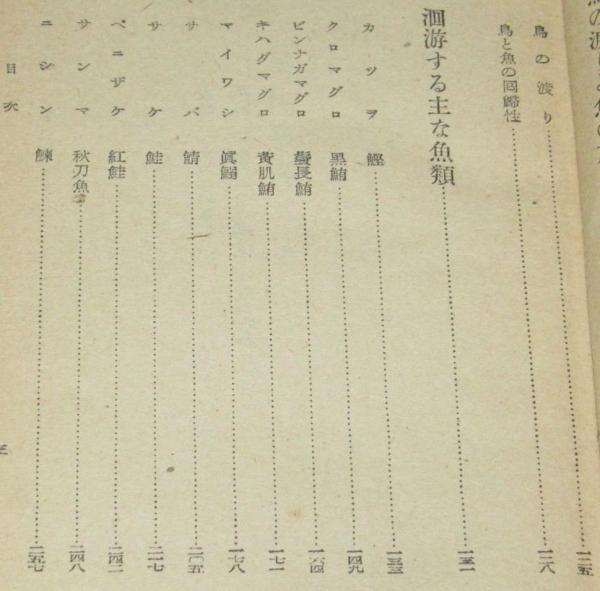 鳥の渡り……一二八
鳥と魚の回歸性
洄游する主な魚類……一三一
カツヲ 鰹……一三三
クロマグロ 黒鮪……一四九
ビンナガマグロ 鬢長鮪……一六四
キハダマグロ 黃肌鮪……一七一
マイワシ 眞鰯……一七八
サバ 鯖……二〇五
サケ 鮭……二一七
ベニザケ 紅鮭……二四二
サンマ 秋刀魚……二四八
ニシン 鰊……二五七
目次
三